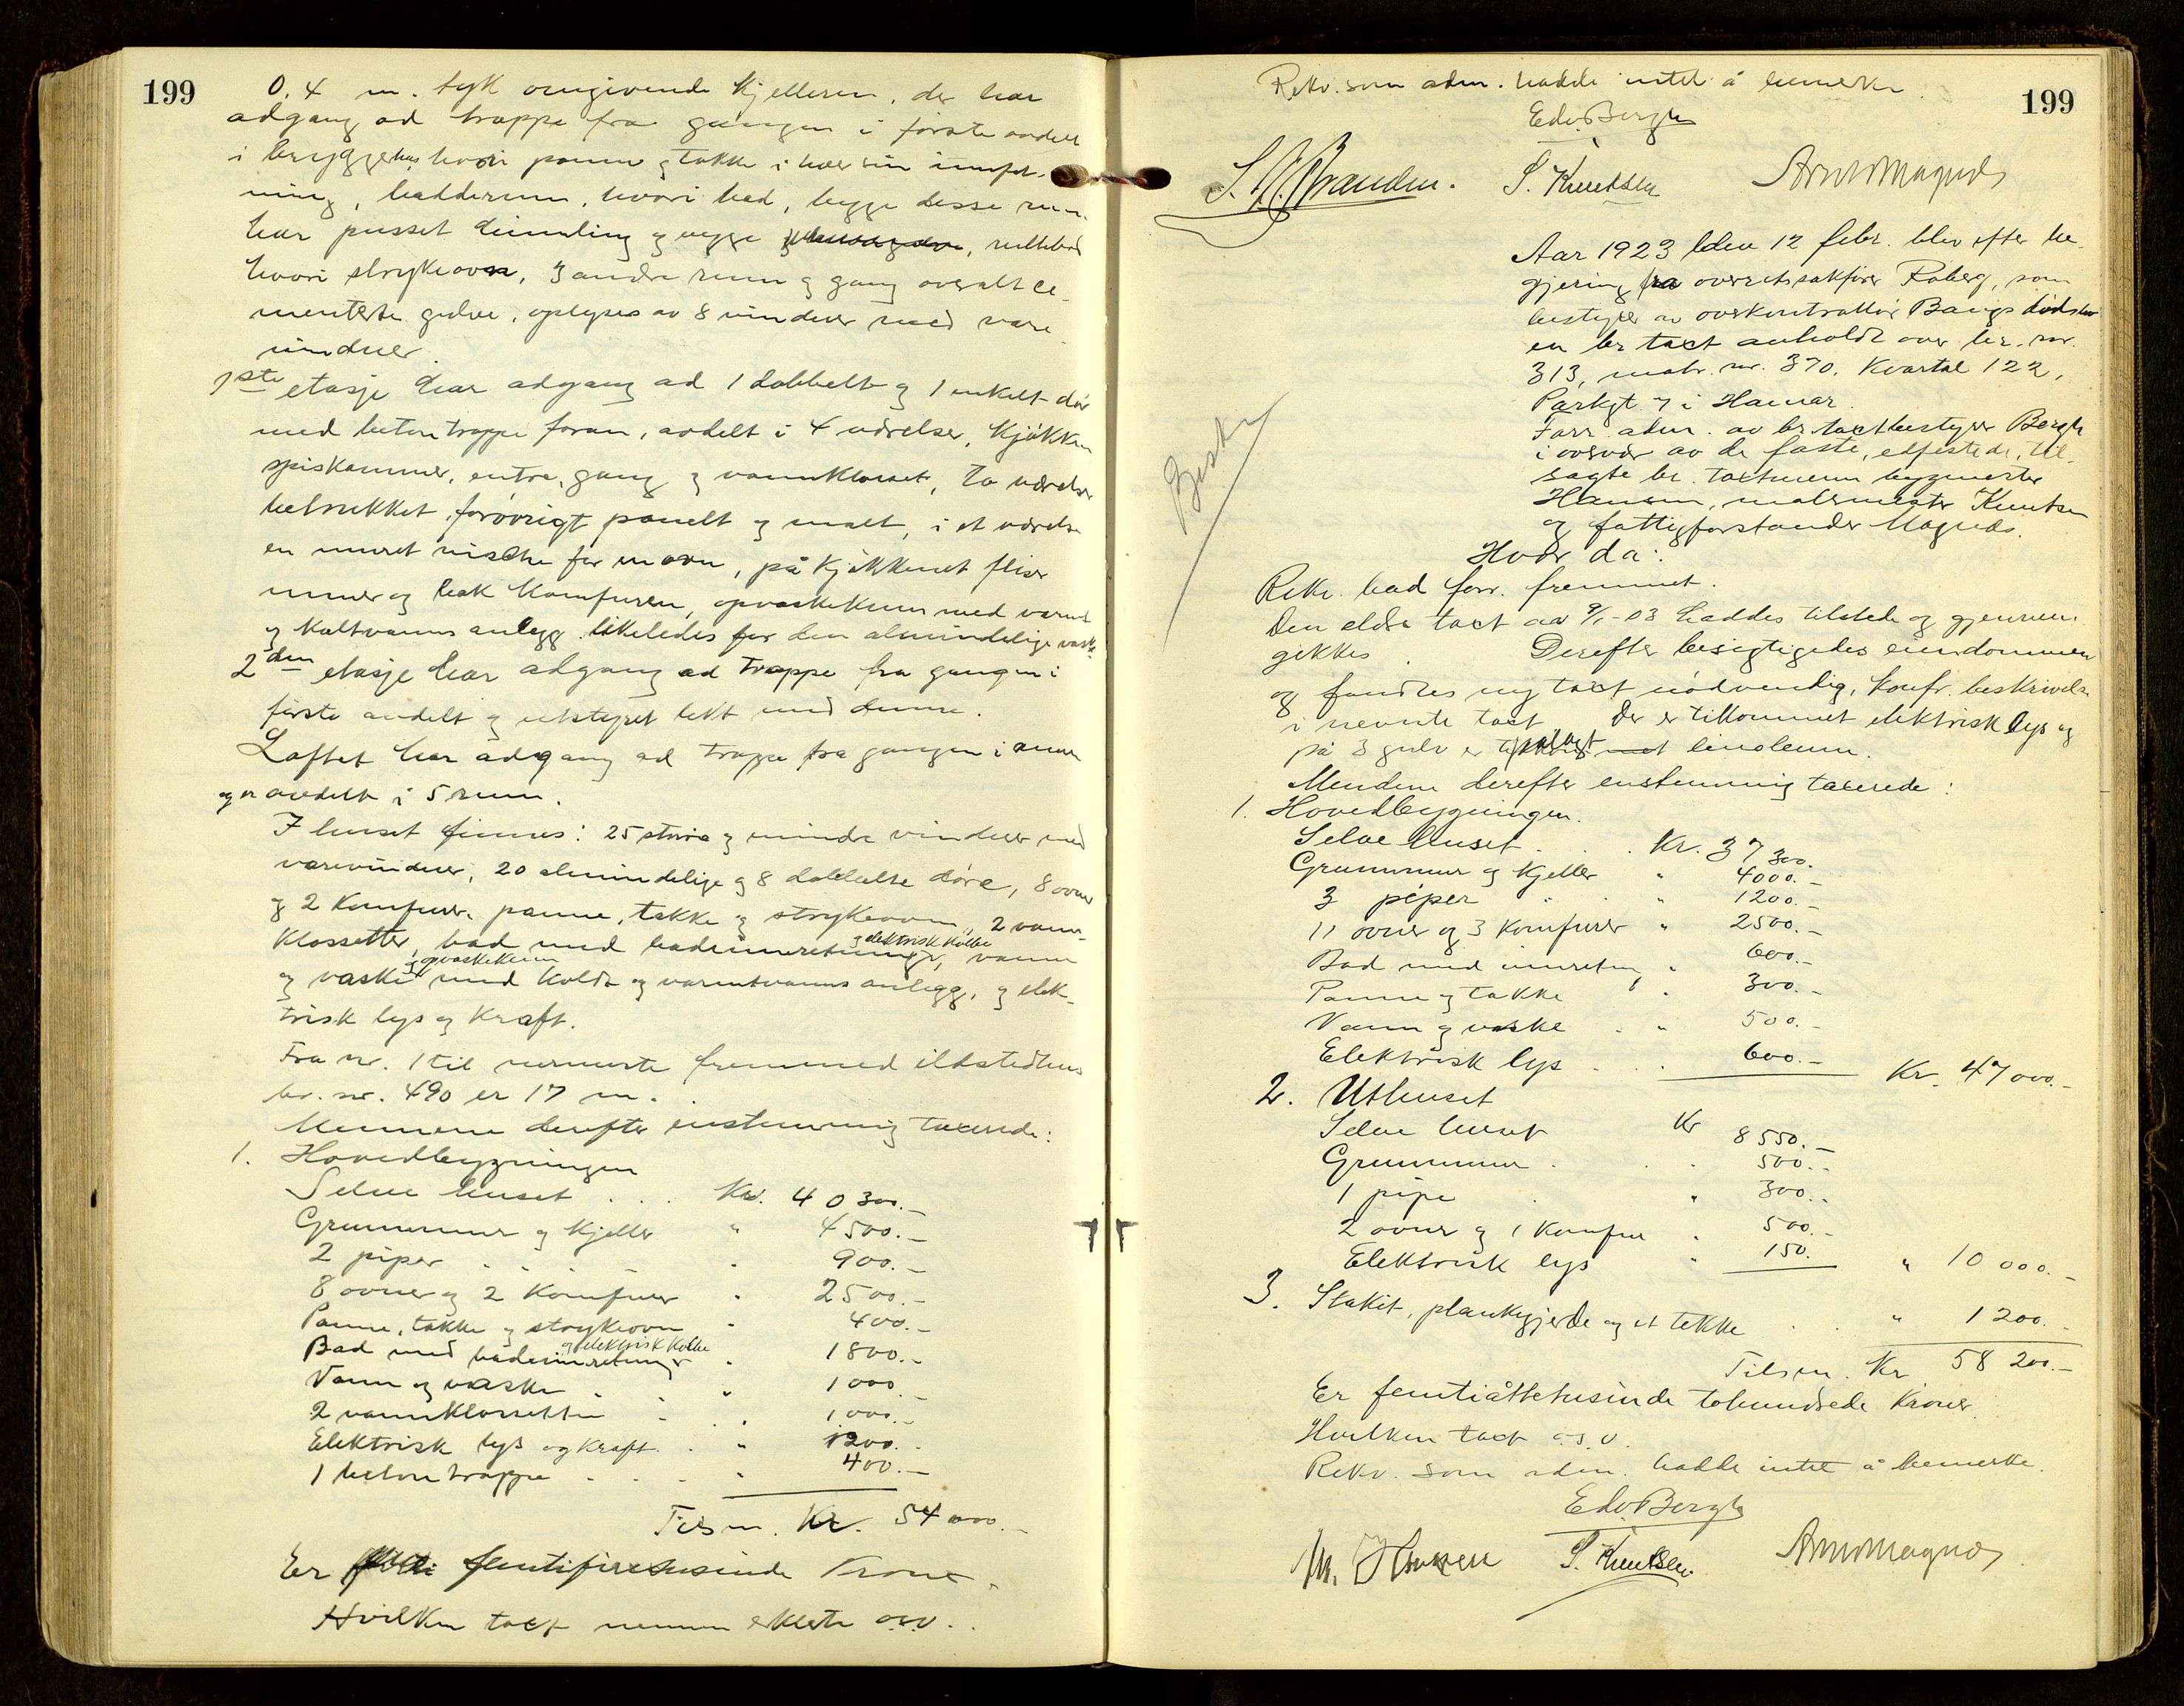 199
0.4 m. tyk omgivende kjelleren, der har
adgang ad trappe fra gangen i første avdelt
i bryggerhus hvori panne og takke i hver sin innfat-
ning, badderum, hvori bad, begge disse rum
har pusset himmling og vegge, rullebod
hvori strykeovn, 3 andre rum og gang overalt ce-
menterte gulve, oplyses av 8 vinduer med vare
vinduer.
1ste etasje har adgang ad 1 dobbelt og 1 enkelt dør
med betontrappe foran, avdelt i 4 værelser, kjøkken
spiskammer, entre, gang og vannklosset, to værelser
betrukket, forøvrigt panelt og malt, i et værelse
en muret nische for en ovn, på kjøkkenet fliser
under og bak komfuren, opvaskekum med varmt
og kaltvanns anlegg likeledes for den almindelige vask.
2den etasje har adgang ad trappe fra gangen i
første avdelt og utstyret likt med denne.
Loftet har adgang ad trappe fra gangen i annen
og er avdelt i 5 rum.
I huset finnes: 25 større og mindre vinduer med
varevinduer, 20 almindelige og 8 dobbelte døre, 8 ovner
og 2 komfurer, panne, takke og strykeovn, 2 vann-
klossetter, bad med badeinnretninger, vann
og elektrisk kolbe
og vaske med kolde og varmtvanns anlegg, og elek-
og opvaskekum
trisk lys og kraft.
Fra nr. 1 til nærmeste fremmed ildstedhus
br. nr. 490 er 17 m.
Mennene derefter enstemmig taxerede:
1. Hovedbygningen
Selve huset . . . Kr. 40 300.-
Grunnmur og kjeller " 4500.-
2 piper . . . " 900.-
8 ovner og 2 komfurer " 2500.-
Panne, takke og strykeovn " 400.-
Bad med badeinnretninger og elektrisk kolbe " 1800.-
Vann og vaske . " 1000.-
2 vannklossetter . . " 1000.-
Elektrisk lys og kraft . " 1200.-
1 betontrappe . . . " 400.-
Tilsm. Kr. 54 000.-
Er femtifiretusinde Kroner.
Hvilken taxt mennene erklærte o.s.v.
199
Rekv. som adm. hadde intet å bemerke.
Edv. Bergh
S. Knudsen
Arnt Magnus
Aar 1923 den 12 febr. blev efter be-
gjering fra overretssakfører Roberg, som
bestyrer av overkontrollør Bangs dødsbo
en br taxt anholdt over br. nr.
313, matr. nr. 370, Kvartal 122,
Parkgt. 7 i Hamar.
Forr. adm. av br. taxtbestyrer Bergh
i overvær av de faste, edfestede, til-
sagte br. taxtmenn bygmester
Hansen, malermester Knutsen
og fattigforstander Magnus.
Besk
Hvor da:
Rekv. bad forr. fremmet.
Den eldre taxt av 9/1-03 haddes tilstede og gjennem
gikkes. Derefter besigtigedes eiendommen
og fandtes ny taxt nødvendig, konfr. beskrivelse
i nevnte taxt. Der er tilkommet elektrisk lys og
på 3 gulv er pålagt linoleum.
Mendene derefter enstemmig taxerede:
1. Hovedbygningen.
Selve huset . . . Kr. 37 300.-
Grunnmur og kjeller " 4000.-
3 piper . . " 1200.-
11 ovner og 3 komfurer " 2500.-
Bad med innretn. " 600.-
Panne og takke " 300.-
Vann og vaske . " 500.-
Elektrisk lys . . . 600.- Kr. 47 000.-
2. Uthuset
Selve huset Kr 8 550.-
Grunnmur . . . 500.-
1 pipe . " 300.-
2 ovner og 1 komfur " 500.-
Elektrisk lys " 150. " 10 000.-
3. Stakit, plankgjerde og et tekke . . " 1 200.-
Tilsm. Kr 58 200.-
Er femtiåttetusinde tohundrede kroner.
Hvilken taxt o.s.v.
Rekv. som adm. hadde intet å bemerke.
Edv. Bergh
M. Hansen
S. Knudsen
Arnt Magnus